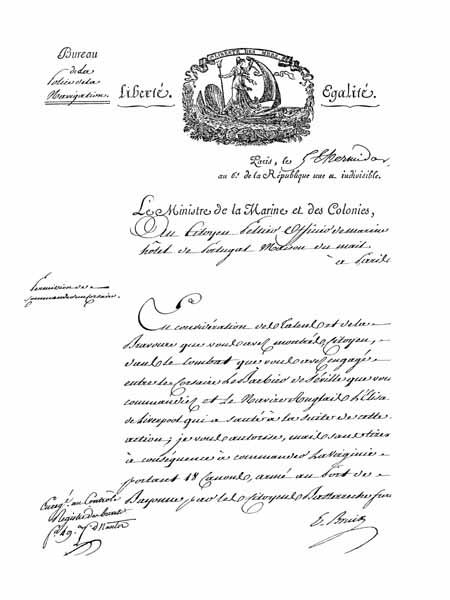 Bureau
de la
Police de la
Navigation.
LIBERTÉ DES MERS
Liberté. Egalité.
Paris, le 5 Thermidor
au 6e. de la République une et indivisible.
Le Ministre de la Marine et des Colonies,
Au Citoyen Officier de marine
hôtel de Portugal Maison du mail
à Paris
Permission de
Commander un Corsaire.
En considération des talens et de la
Bravoure que vous avez montrés, Citoyen,
dans le Combat que vous avez engagé
entre le Corsaire Le Barbier de Séville que vous
commandiez et le Navire Anglais l'Elisa
de Liverpool qui a sauté à la suite de cette
action; je vous autorise, mais sans tirer
à conséquence à commander La Virginie
portant 18 Canons, armé au Port de
Bayonne par les Citoyens
Enregé. au Contrôle
Registre des
fo. 49. de Nantes
E. Bruix